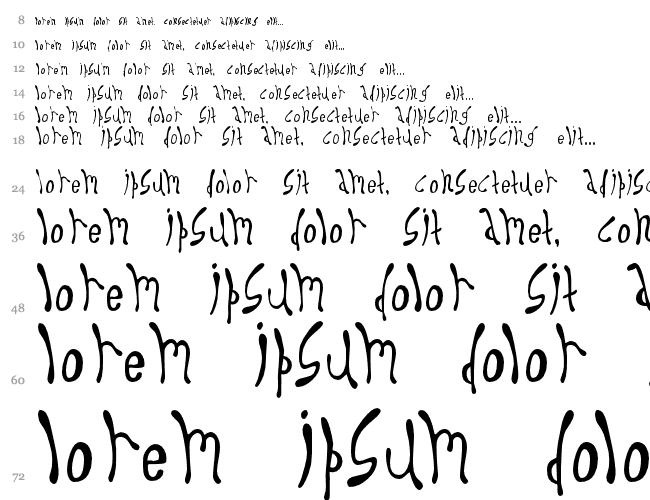 8 lorem ipsum dolor sit amet, consectetuer adipiscing elit...
10 lorem ipsum dolor sit amet, consectetuer adipiscing elit...
12 lorem ipsum dolor sit amet, consectetuer adipiscing elit...
14 lorem ipsum dolor sit amet, consectetuer adipiscing elit...
16 lorem ipsum dolor sit amet, consectetuer adipiscing elit...
18 lorem ipsum dolor sit amet, consectetuer adipiscing elit...
24 lorem ipsum dolor sit amet, consectetuer adipisc
36 lorem ipsum dolor sit amet, con
48 lorem ipsum dolor sit a
60 lorem ipsum dolor
72 lorem ipsum dolo